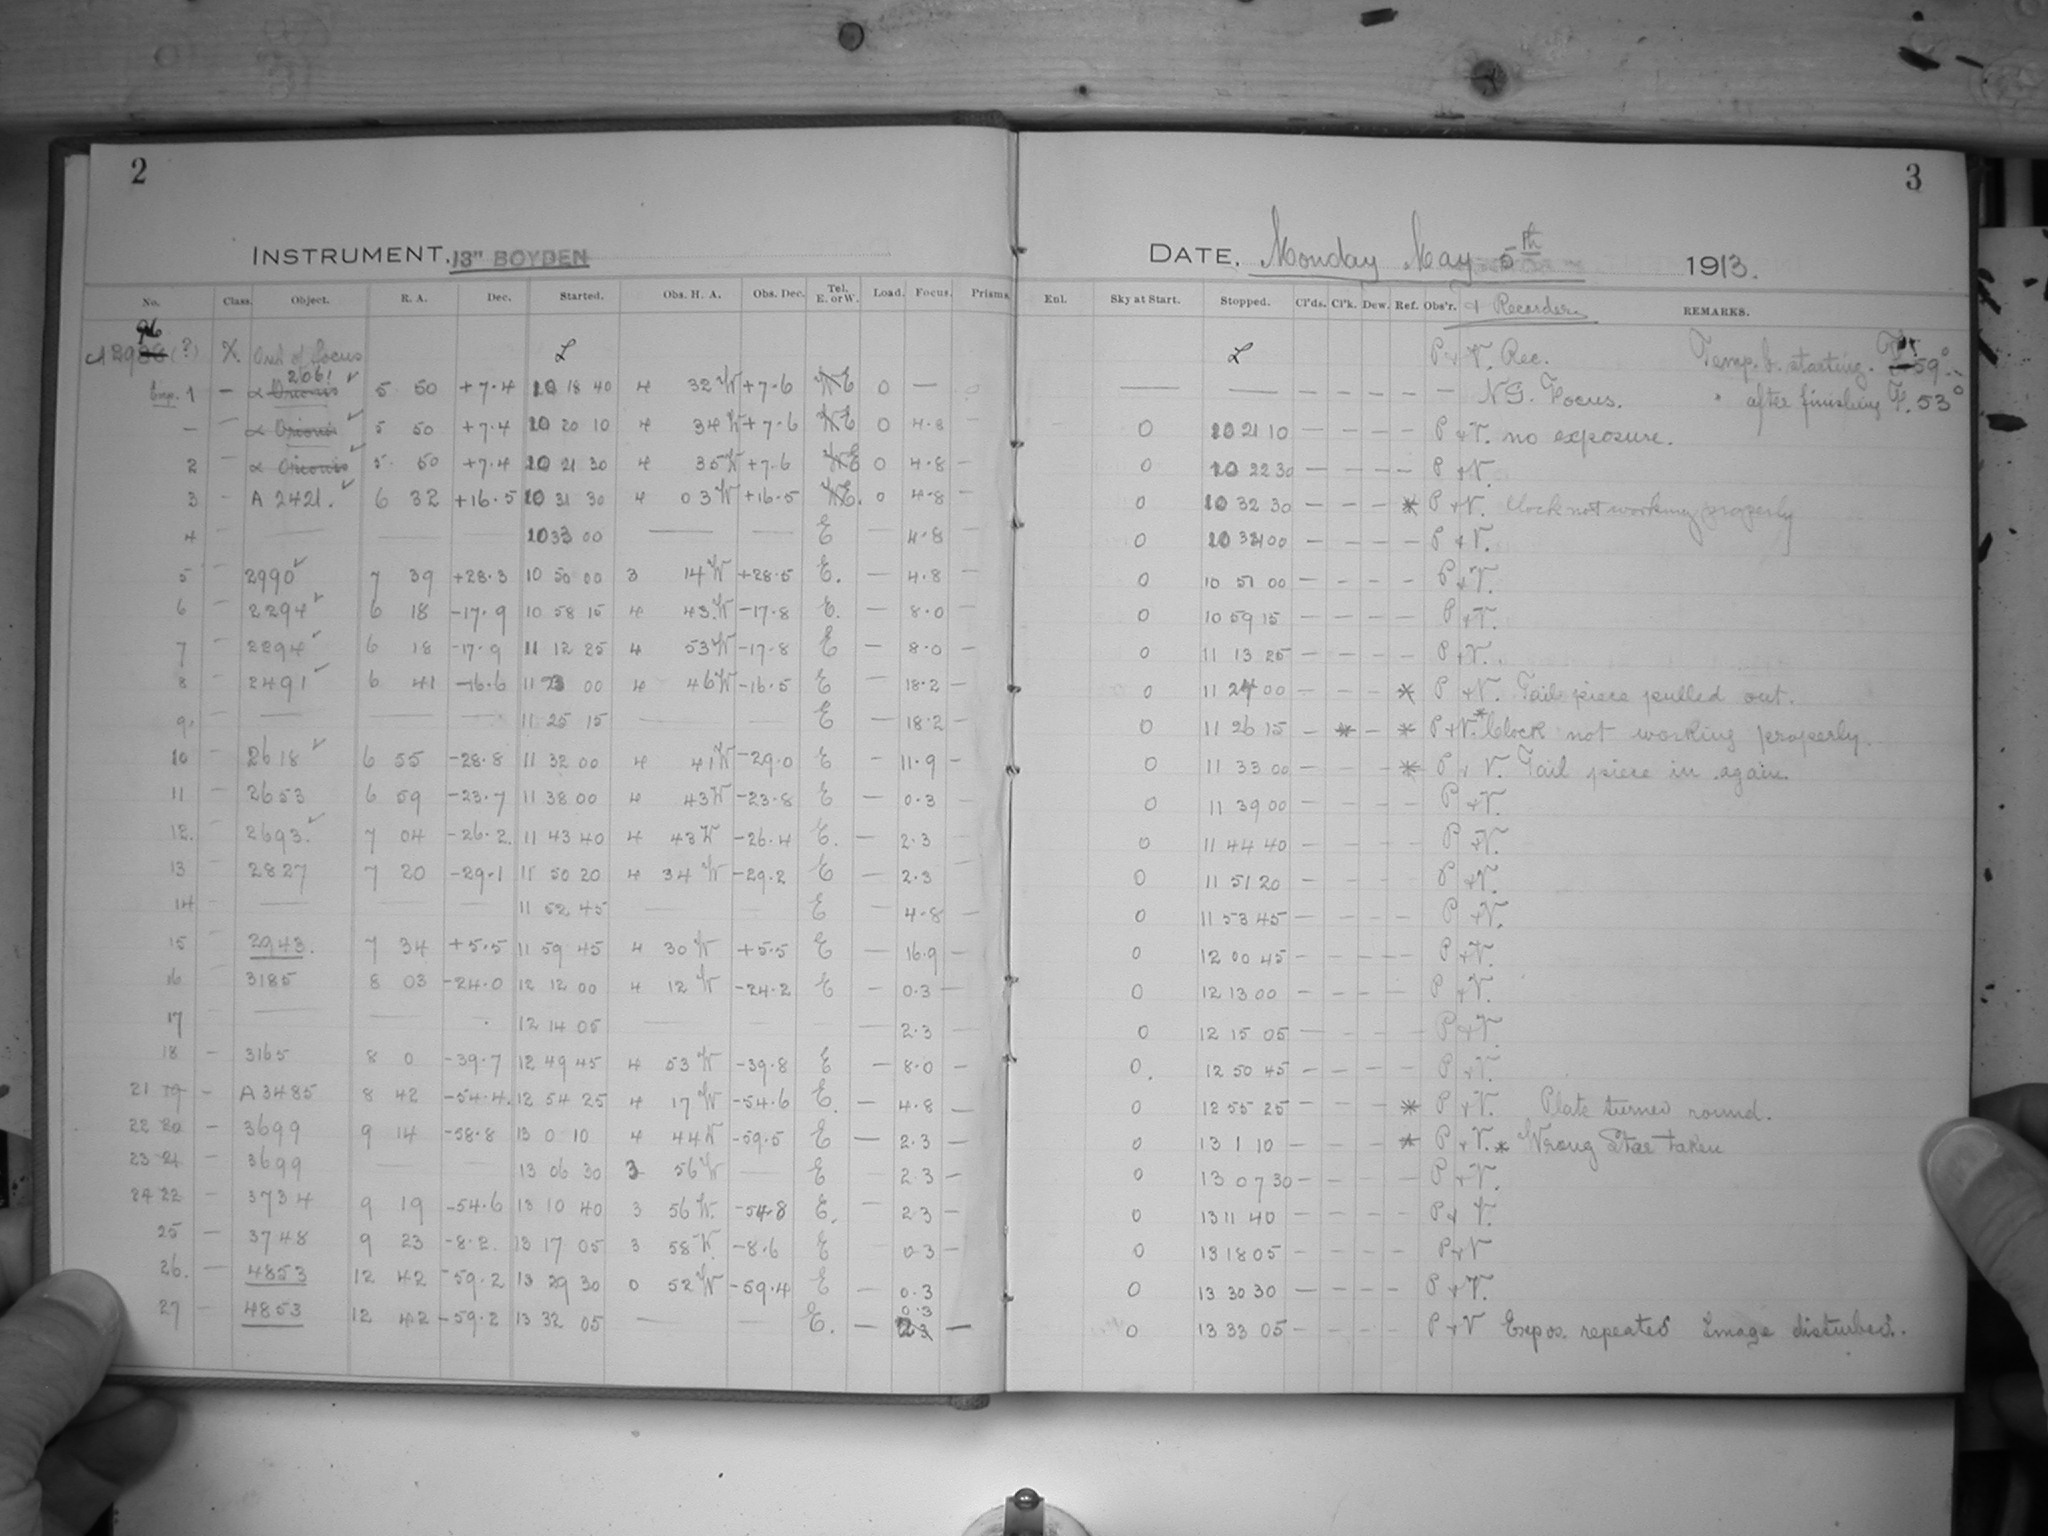 2
INSTRUMENT. 13" BOYDEN
No. Class. Object. R. A. Dec. Started. Obs. H. A. Obs. Dec. Tel. E. or W. Load. Focus. Prisms.
96
(?) X. Out of focus L
2061
Exp. 1 – α Orionis ✓ 5 50 +7.4 10 18 40 4 32 W +7.6 W E 0 —
– – α Orionis ✓ 5 50 +7.4 10 20 10 4 34 W +7.6 W E 0 4.8
2 – α Orionis ✓ 5. 50 +7.4 10 21 30 4 35 W +7.6 W E 0 4.8 –
3 – A 2421. ✓ 6 32 +16.5 10 31 30 4 03 W +16.5 W E. 0 4.8 –
4 – — — — 10 33 00 — — E – 4.8
5 – 2990 ✓ 7 39 +28.3 10 50 00 3 14 W +28.5 E. – 4.8 –
6 – 2294 ✓ 6 18 –17.9 10 58 15 4 43. W –17.8 E. – 8.0 –
7 – 2294 ✓ 6 18 –17.9 11 12 25 4 53 W –17.8 E – 8.0 –
8 – 2491 ✓ 6 41 –16.6 11 23 00 4 46 W –16.5 E – 18.2 –
9. – — — — 11 25 15 — — E – 18.2 –
10 – 2618 ✓ 6 55 –28.8 11 32 00 4 41 W –29.0 E – 11.9 –
11 – 2653 6 59 –23.7 11 38 00 4 43 W –23.8 E – 0.3 –
12. – 2693. ✓ 7 04 –26.2. 11 43 40 4 43 W –26.4 E. – 2.3 –
13 – 2827 7 20 –29.1 11 50 20 4 34 W –29.2 E – 2.3 –
14 – — — — 11 52 45 — — E – 4.8 –
15 – 2943. 7 34 +5.5 11 59 45 4 30 W +5.5 E – 16.9 –
16 – 3185 8 03 –24.0 12 12 00 4 12 W –24.2 E – 0.3 –
17 – — — – 12 14 05 — — – – 2.3 –
18 – 3165 8 0 –39.7 12 49 45 4 53 W –39.8 E – 8.0 –
21 19 – A 3485 8 42 –54.4. 12 54 25 4 17 W –54.6 E. – 4.8 –
22 20 – 3699 9 14 –58.8 13 0 10 4 44 W –59.5 E – 2.3 –
23 21 – 3699 — — 13 06 30 3 56 W — E 2.3 –
24 22 – 3734 9 19 –54.6 13 10 40 3 56 W. –54.8 E. – 2.3 –
25 – 3748 9 23 –8.2. 13 17 05 3 58 W. –8.6 E 0.3 –
26. – 4853 12 42 –59.2 13 29 30 0 52 W –59.4 E – 0.3
0.3
27 – 4853 12 42 –59.2 13 32 05 — — E. – 2.3 –
3
DATE. Monday May 5th 1913.
Enl. Sky at Start. Stopped. Cl'ds. Cl'k. Dew. Ref. Obs'r. & Recorder REMARKS.
L P + V. Rec. Temp. b. starting. 59°
— — – – – – – N.G. Focus. " after finishing F. 53°
0 10 21 10 – – – – P + V. no exposure.
0 10 22 30 – – – – P + V.
0 10 32 30 – – – * P + V. Clock not working properly
0 10 34 00 – – – – P + V.
0 10 51 00 – – – – P + V.
0 10 59 15 – – – – P + V.
0 11 13 25 – – – – P + V.
0 11 24 00 – – – * P + V. Tail piece pulled out.
0 11 26 15 – * – * P + V. * Clock not working properly.
0 11 33 00 – – – * P + V. Tail piece in again.
0 11 39 00 – – – – P + V.
0 11 44 40 – – – – P + V.
0 11 51 20 – – – – P + V.
0 11 53 45 – – – – P + V.
0 12 00 45 – – – – P + V.
0 12 13 00 – – – – P + V.
0 12 15 05 – – – – P + V.
0. 12 50 45 – – – – P + V.
0 12 55 25 – – – * P + V. Plate turned round.
0 13 1 10 – – – * P + V. * Wrong Star taken
0 13 07 30 – – – – P + V.
0 13 11 40 – – – – P + V.
0 13 18 05 – – – – P + V
0 13 30 30 – – – – P + V.
0 13 33 05 – – – – P + V Expos. repeated Image disturbed.